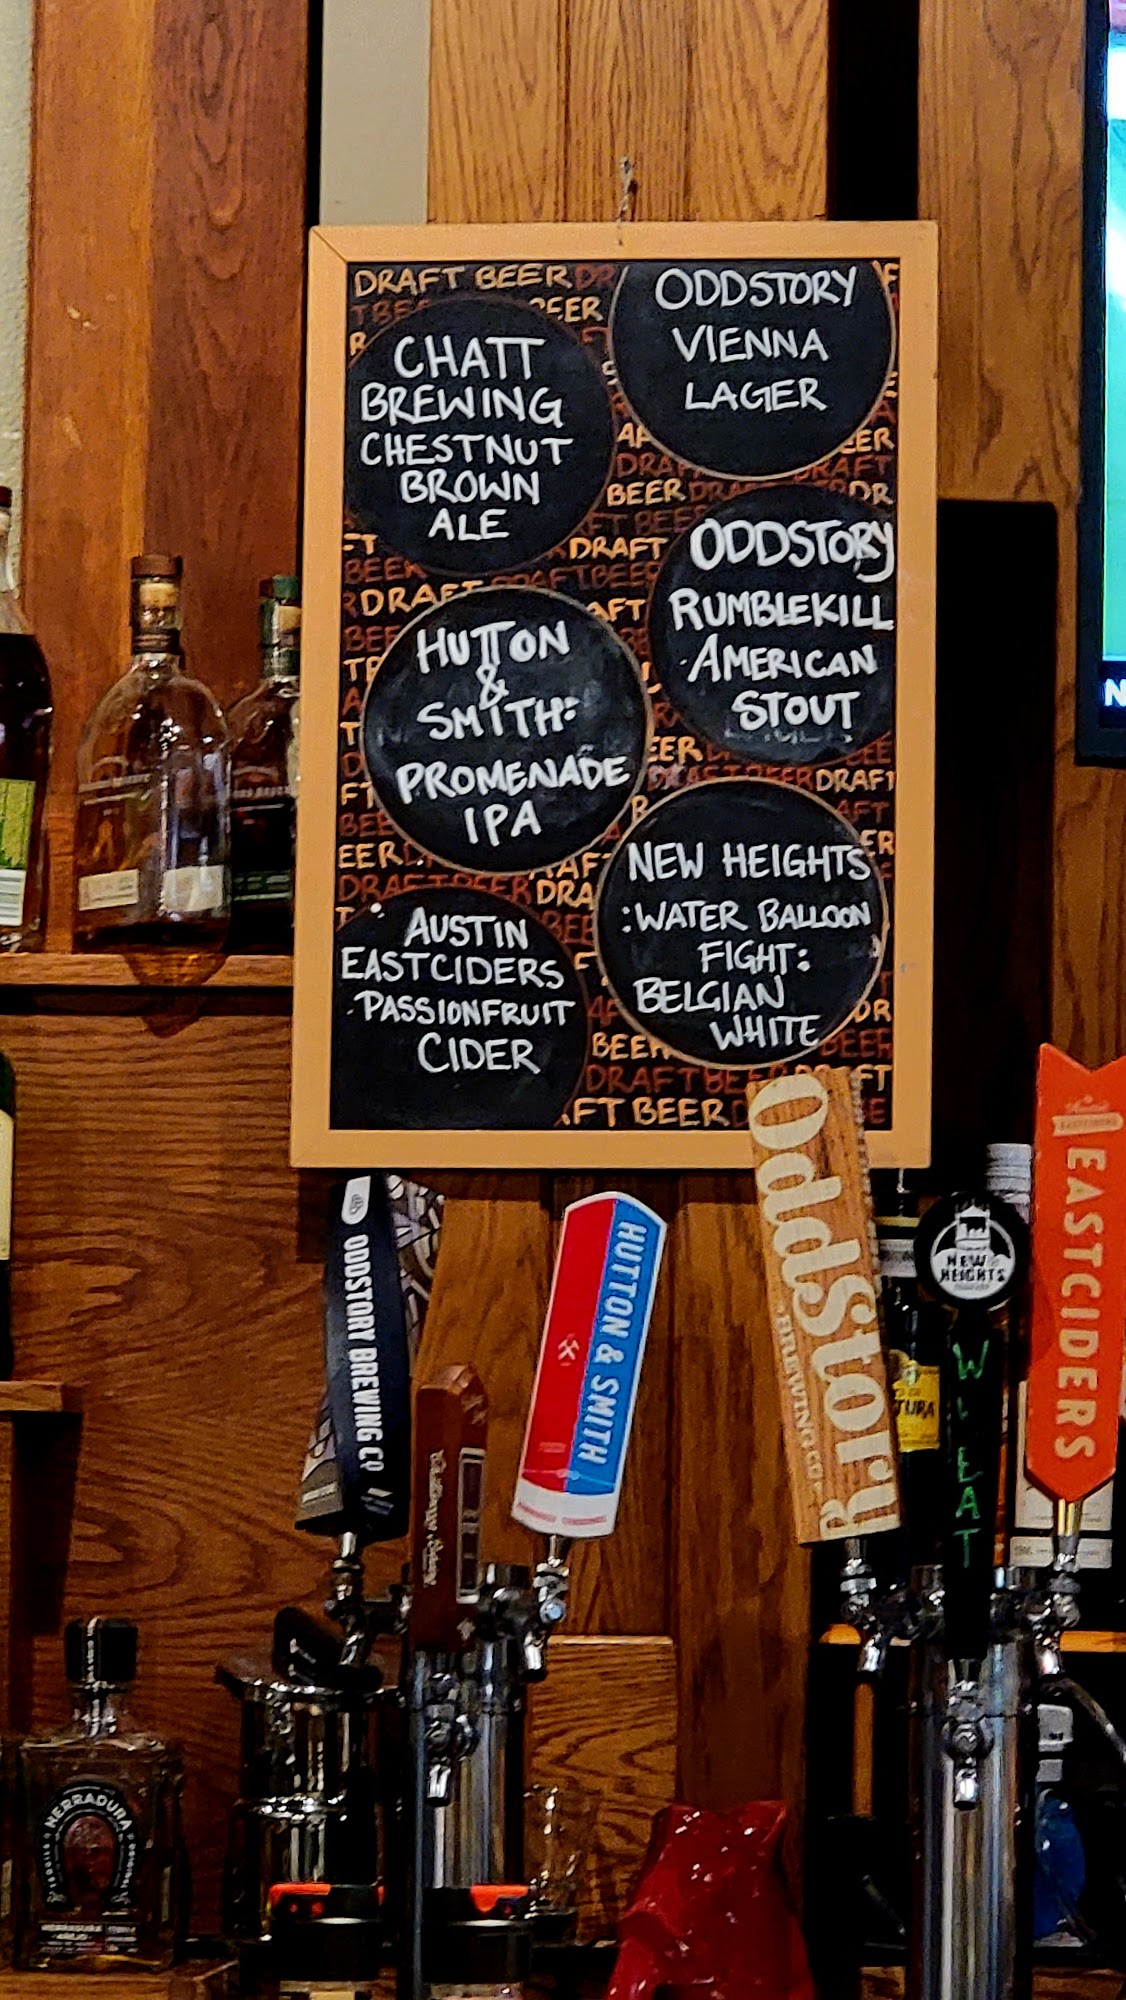 DRAFT BEER
CHATT
BREWING
CHESTNUT
BROWN
ALE
ODDSTORY
VIENNA
LAGER
ODDSTORY
RUMBLEKILL
AMERICAN
STOUT
HUTTON
&
SMITH:
PROMENADE
IPA
NEW HEIGHTS
:WATER BALLOON
FIGHT:
BELGIAN
WHITE
AUSTIN
EASTCIDERS
PASSIONFRUIT
CIDER
DRAFT
BEER
DRAFT
DRAFT BEER
ODDSTORY BREWING CO
HUTTON & SMITH
OddStory
BREWING CO.
NEW
HEIGHTS
WHEAT
EASTCIDERS
HERRADURA